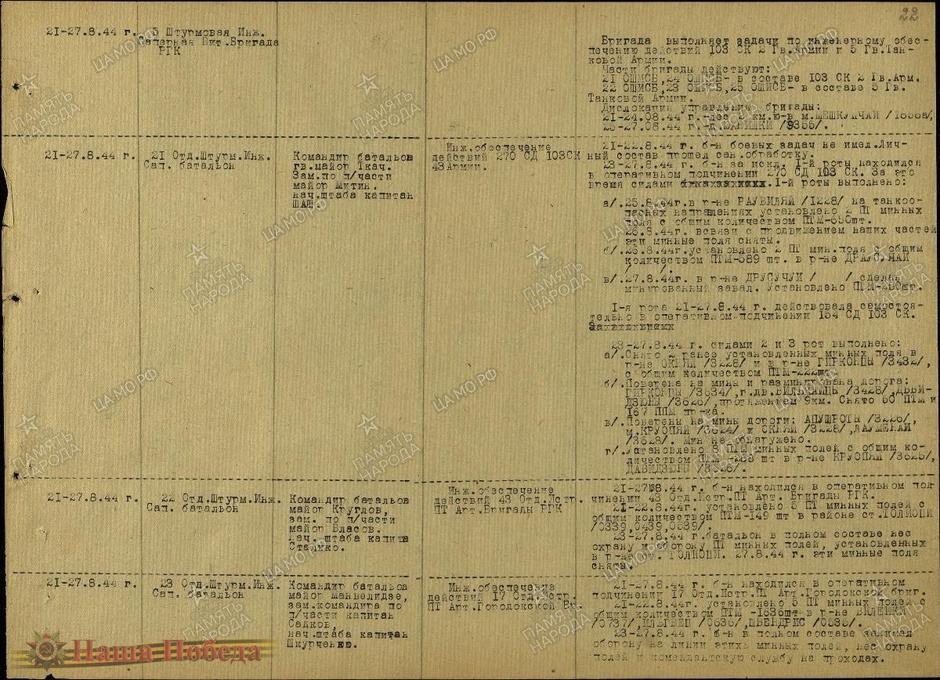 22
21-27.8.44 г. 5 Штурмовая Инж.
Саперная Вит.Бригада
РГК
Бригада выполняет задачи по инженерному обес-
печению действий 103 СК 2 Гв.Армии и 5 Гв.Тан-
ковой Армии.
Части бригады действуют:
21 ОШИСБ, 24 ОШИСБ- в составе 103 СК 2 Гв.Арм.
22 ОШИСБ, 23 ОШИСБ, 25 ОШИСБ- в составе 5 Гв.
Танковой Армии.
Дислокация управления бригады:
21-24.08.44 г.-лес 3 км.ю-в м.
-27.08.44 г.-д. /9356/.
21-27.8.44 г. 21 Отд.Штурм.Инж.
Сап. батальон
Командир батальов
гв.майор Ткач.
Зам.по п/части
майор Митин.
нач.штаба капитан
Инж.обеспечение
действий 270 СД 103СК
43Армии.
21-22.8.44г. б-н боевых задач не имел.Лич-
ный состав прошел сан.обработку.
23-27.8.44г. б-н за искл. 1-й роты находился
в оперативном подчинении 270 СД 103 СК. За это
время силами 1-й роты выполнено:
а/.25.8.44г.в р-не РАУБИДЯЙ /1228/ на танкоо-
пасных направлениях установлено 2 ПТ минных
поля с общим количеством ПТМ-550шт.
26.8.44г. всвязи с продвижением наших частей
эти минные поля сняты.
б/.26.8.44г.установлено 2 ПТ мин.поля с общим
количеством ПТМ-589 шт. в р-не
/ /.
в/.27.8.44г. в р-не ДРУСУЧУЙ / / сделан
минированный завал. Установлено
1-я рота 21-27.8.44 г. действовала самостоя-
тельно в оперативном подчинении 154 СД 103 СК.
23-27.8.44 г. силами 2 и 3 рот выполнено:
а/.Снято 2 ранее установленных минных поля в
р-не ОКНЯЙ /3228/ и в р-не ГИРКОНЦЫ /3432/,
с общим количеством ПТМ-222шт.
б/.Поверена на мины и разминирована дорога:
ГИРКОНЦЫ /3634/, г.дв. /3428/,
/3626/,протяжением 9км. Снято 50 ПТМ и
167 ППМ пр-ка.
в/.Поверены на мины дороги: /3226/,
м.КРУОПЯЙ /3624/ и ОКНЯЙ /3228/,
/3628/. Мин не обнаружено.
г/.Установлено 8 ПТМ минных полей с общим ко-
личеством шт в р-не КРУОПЯЙ /3625/,
21-27.8.44 г. 22 Отд.Штурм.Инж.
Сап. батальон
Командир батальов
майор Круглов,
зам. по п/части
майор Власов.
нач. штаба капитан
Сташко.
Инж.обеспечение
действий 43 Отд.Истр.
ПТ Арт.Бригады РГК
21-27.8.44 г. б-н находился в оперативном под-
чинении 43 Отд.Истр.ПТ Арт. Бригады РГК.
21-22.8.44г. установлено 5 ПТ минных полей с
общим количеством ПТМ-149 шт в районе ст.
/0339,0439,0539/.
23-27.8.44 г.батальон в полном составе нес
охрану и оборону ПТ минных полей, установленных
в р-не ст. 27.8.44 г. эти минные поля
сняты.
21-27.8.44 г. 23 Отд.Штурм.Инж.
Сап. батальон
Командир батальов
майор Манвелидзе,
зам.командира по
п/части капитан
Салков,
нач.штаба капитан
Шкурченко.
Инж.обеспечение
действий 17 Отд.Истр.
ПТ Арт.Городокской
21-27.8.44 г. б-н находился в оперативном
подчинении 17 Отд.Истр.ПТ Арт.Городокской бриг.
21-22.8.44г. установлено 5 ПТ минных полей с
общим количеством ПТМ -1636шт в р-не
/0737/, /0636/, /0635/.
23-27.8.44 г. б-н в полном составе занимал
оборону на линии этихъ минных полей, нес охрану
полей и комендантскую службу на проходах.
Наша Победа
ПАМЯТЬ НАРОДА
ЦАМО РФ